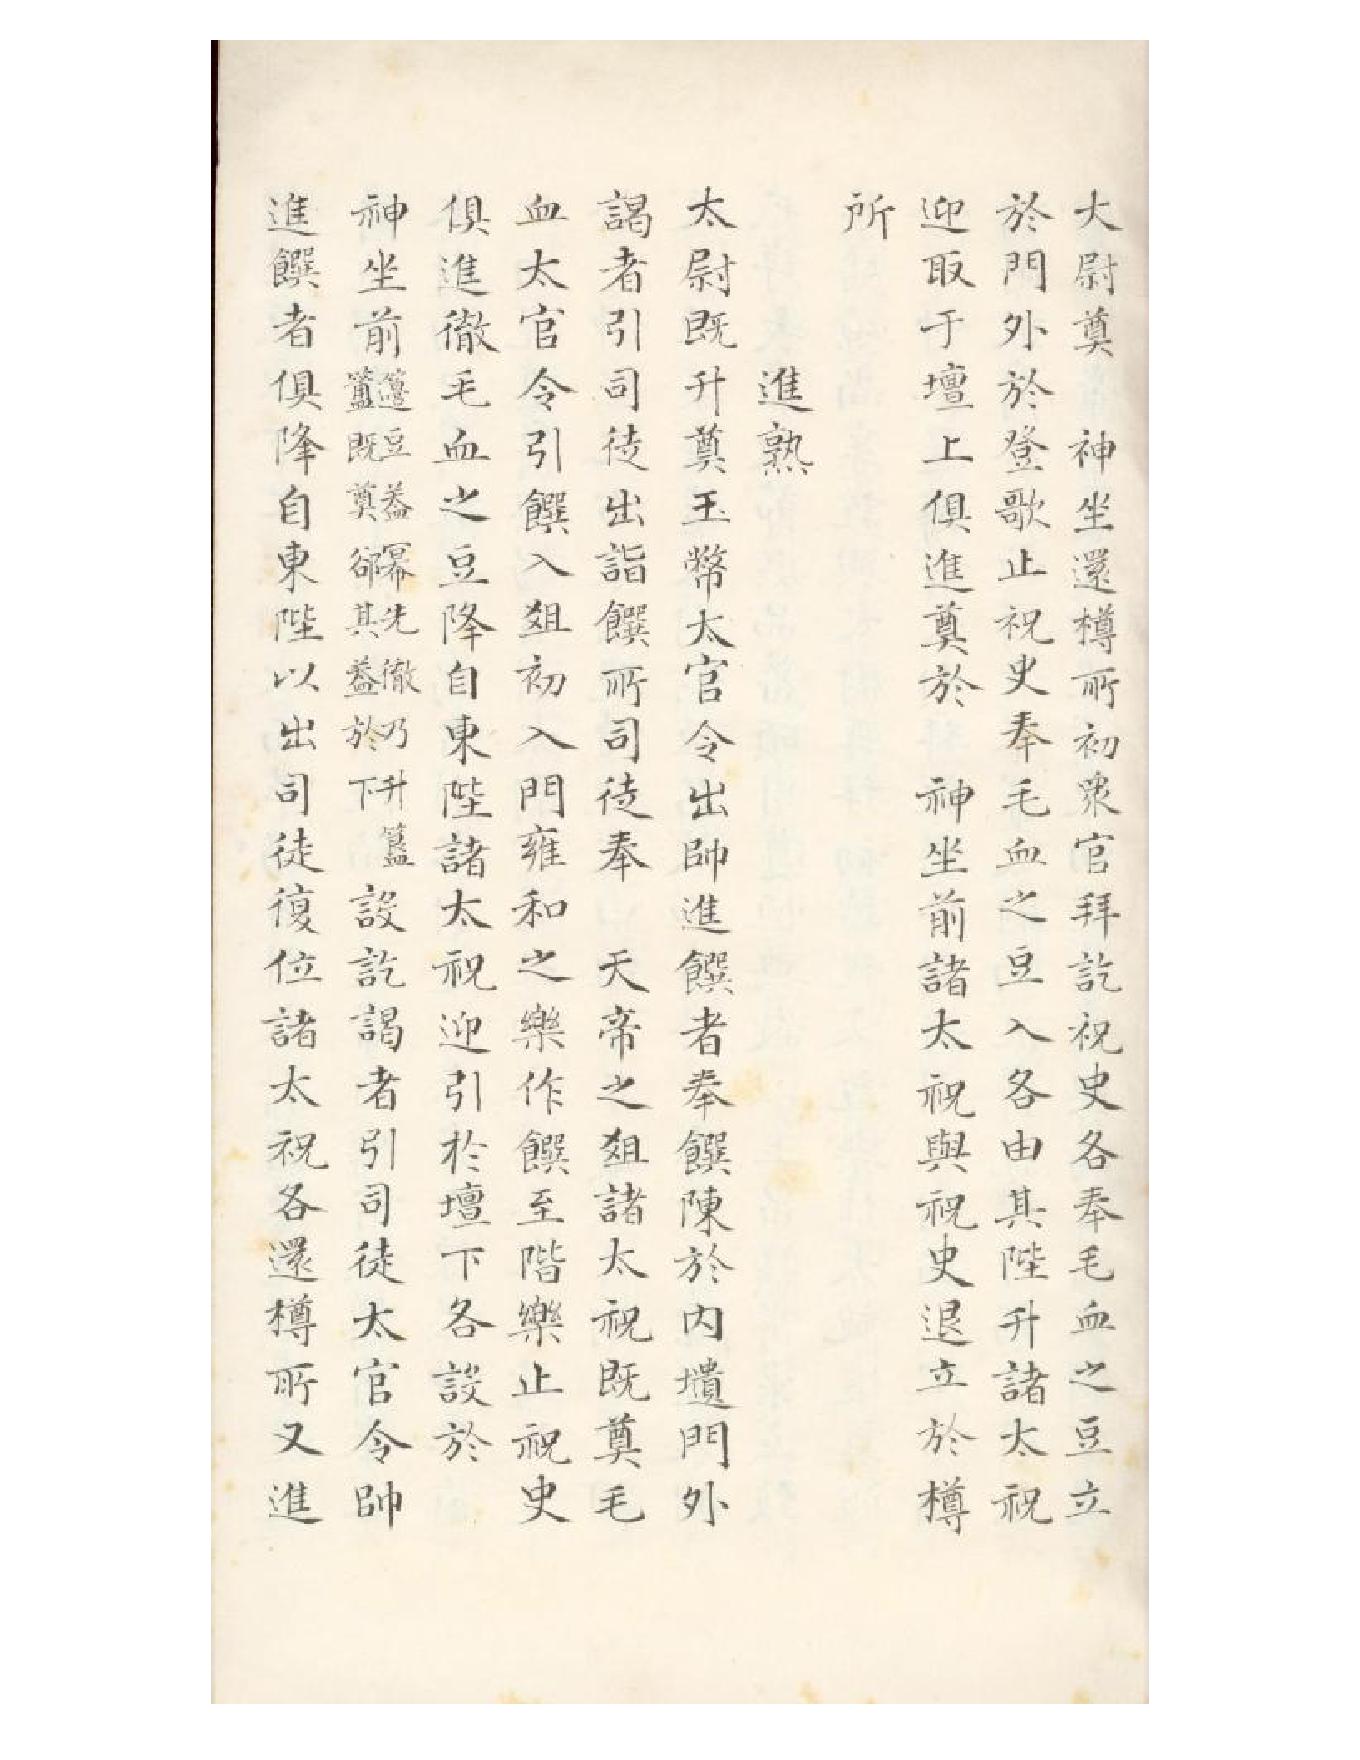 大尉奠　神坐還樽所初衆官拜訖祝史各奉毛血之豆立
於門外於登歌止祝史奉毛血之豆入各由其陛升諸太祝
迎取于壇上俱進奠於　神坐前諸太祝與祝史退立於樽
所
進熟
太尉既升奠玉幣太官令出帥進饌者奉饌陳於内壝門外
謁者引司徒出詣饌所司徒奉　天帝之俎諸太祝既奠毛
血太官令引饌入俎初入門雍和之樂作饌至階樂止祝史
俱進徹毛血之豆降自東陛諸太祝迎引於壇下各設於
神坐前籩豆葢冪先徹乃升簠簋既奠郤其葢於下設訖謁者引司徒太官令帥
進饌者俱降自東陛以出司徒復位諸太祝各還樽所又進